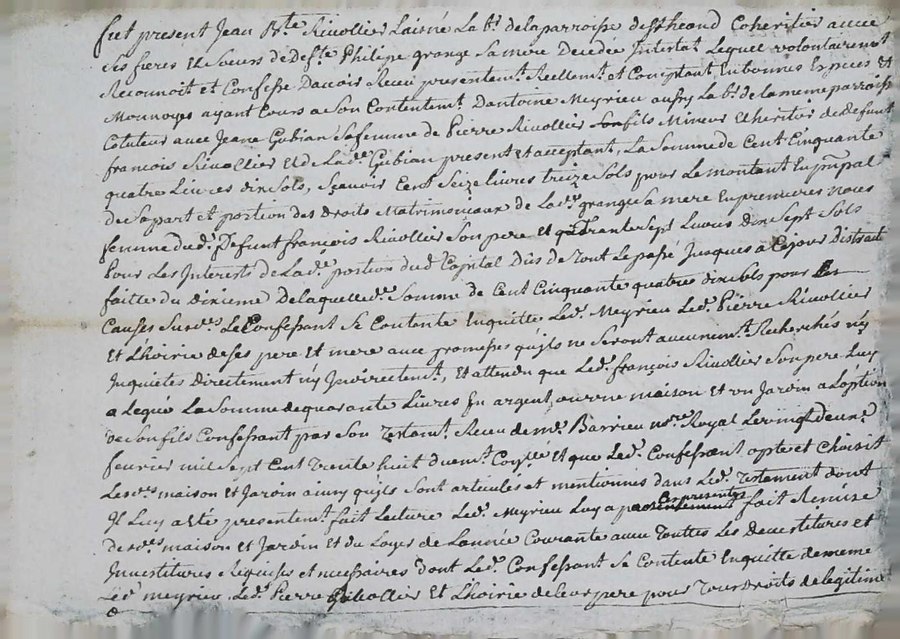 fut present Jean Bte Rivollier Laisné La br de la parroisse de St heand Coheritier avec
Ses freres et Soeurs de Defte Philipe grange Sa mere Decedée Intestat Lequel volontairement
Reconnoit et Confesse Davoir Receu presentemt Reellemt et Comptant En bonnes Especes et
Monnoyes ayant Cours a Son Contentemt Dantoine Meyrieu aussy La br de la meme parroisse
Cotuteur avec Jeane Gubian Sa femme de Pierre Rivollier son fils Mineur et heritier de Defunt
francois Rivollier Et de La de Gubian present et acceptant La Somme de Cent Cinquante
quatre Livres dix Sols, Sçavoir Cent Seize livres treize Sols pour Le montant En ppal
de Sa part et portion des Droits Matrimoniaux de La de grange Sa mere En premieres noces
femme dud. Defunt francois Rivollier Son pere et Trante Sept Livres Dix Sept Sols
pour Les Interests de La de portion dud Capital Dûs de Tout Le passé Jusques a Cejour Distraction
faitte du dixieme De laquelle de Somme de Cent Cinquante quatre dix sols pour Les
Causes Susdes Le Confessant Se Contente En quitte Led. Meyrieu Led. Pierre Rivollier
Et L'hoirie de Ses pere et mere avec promesses qu'ils ne Seront aucunemt Recherchés n'y
Inquietés Directement n'y Indirectemt, Et attendu que Led. françois Rivollier Son pere Luy
a Legué La Somme de quarante Livres En argent, ou une maison et un Jardin a Loption
de Son fils Confessant par Son Testamt Receu de me Barrieu nore Royal Le vingt Deux
fevrier mil Sept Cent Trente huit duemt Et que Led. Confessant opte et Choisit
Les des maison et Jardin ainsy qu'ils Sont articulés et mentionnes dans Led. Testament dont
Il Luy a eté presentemt fait Lecture Led. Meyrieu Luy a presentement fait Remise
des des maison et Jardin et du Loyer de Lannée Courante avec Touttes Les Devestitures et
Investitures Requises et necessaires dont Led. Confessant Se Contente En quitte de meme
Led meyrieu Led. Pierre Rivollier Et L'hoirie de Leur pere pour Tous Droits de legitime